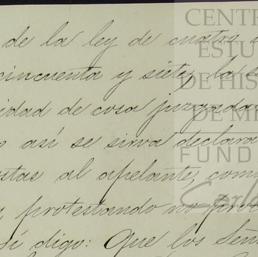 de la ley de cuatro
cincuenta y siete, la
cidad de cosa juzgada
así se sirva declarar
al apelante, com
protestando no
digo: Que los Seño
CENT
ESTU
DE HIS
DE M
FUND
Carl